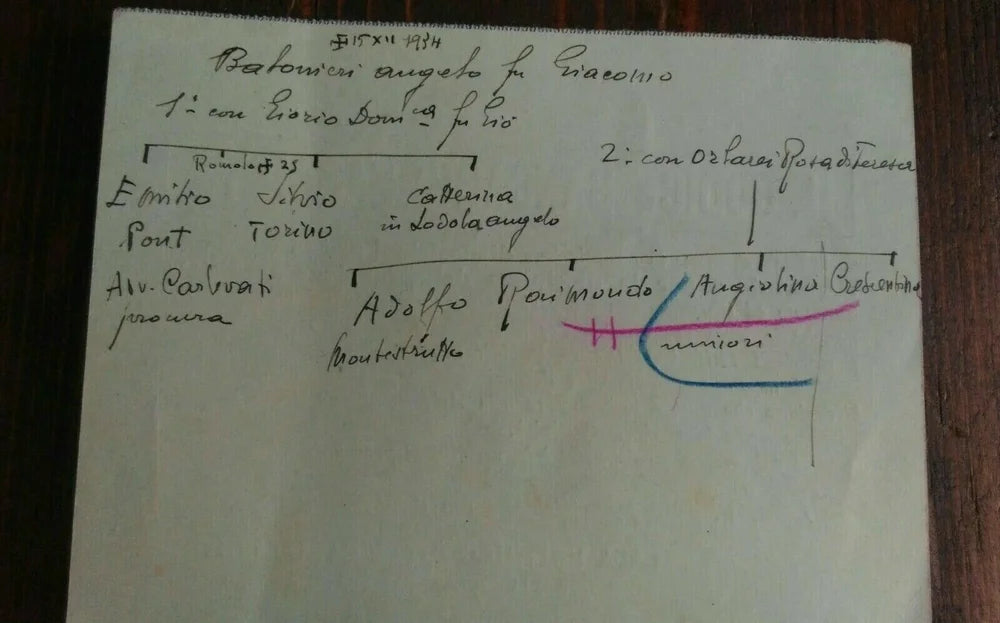 15 XII 1934
Batonieri angelo fu Giacomo
1° con Giorio Dom.ca fu Giò
2: con Orlarei Rosa di Teresa
Romolo 35
Emilio Silvio Catterina
Pont Torino in Lodola angelo
Avv. Carlevati
procura
Adolfo Raimondo Angiolina Crescentina
Montestrutto minori